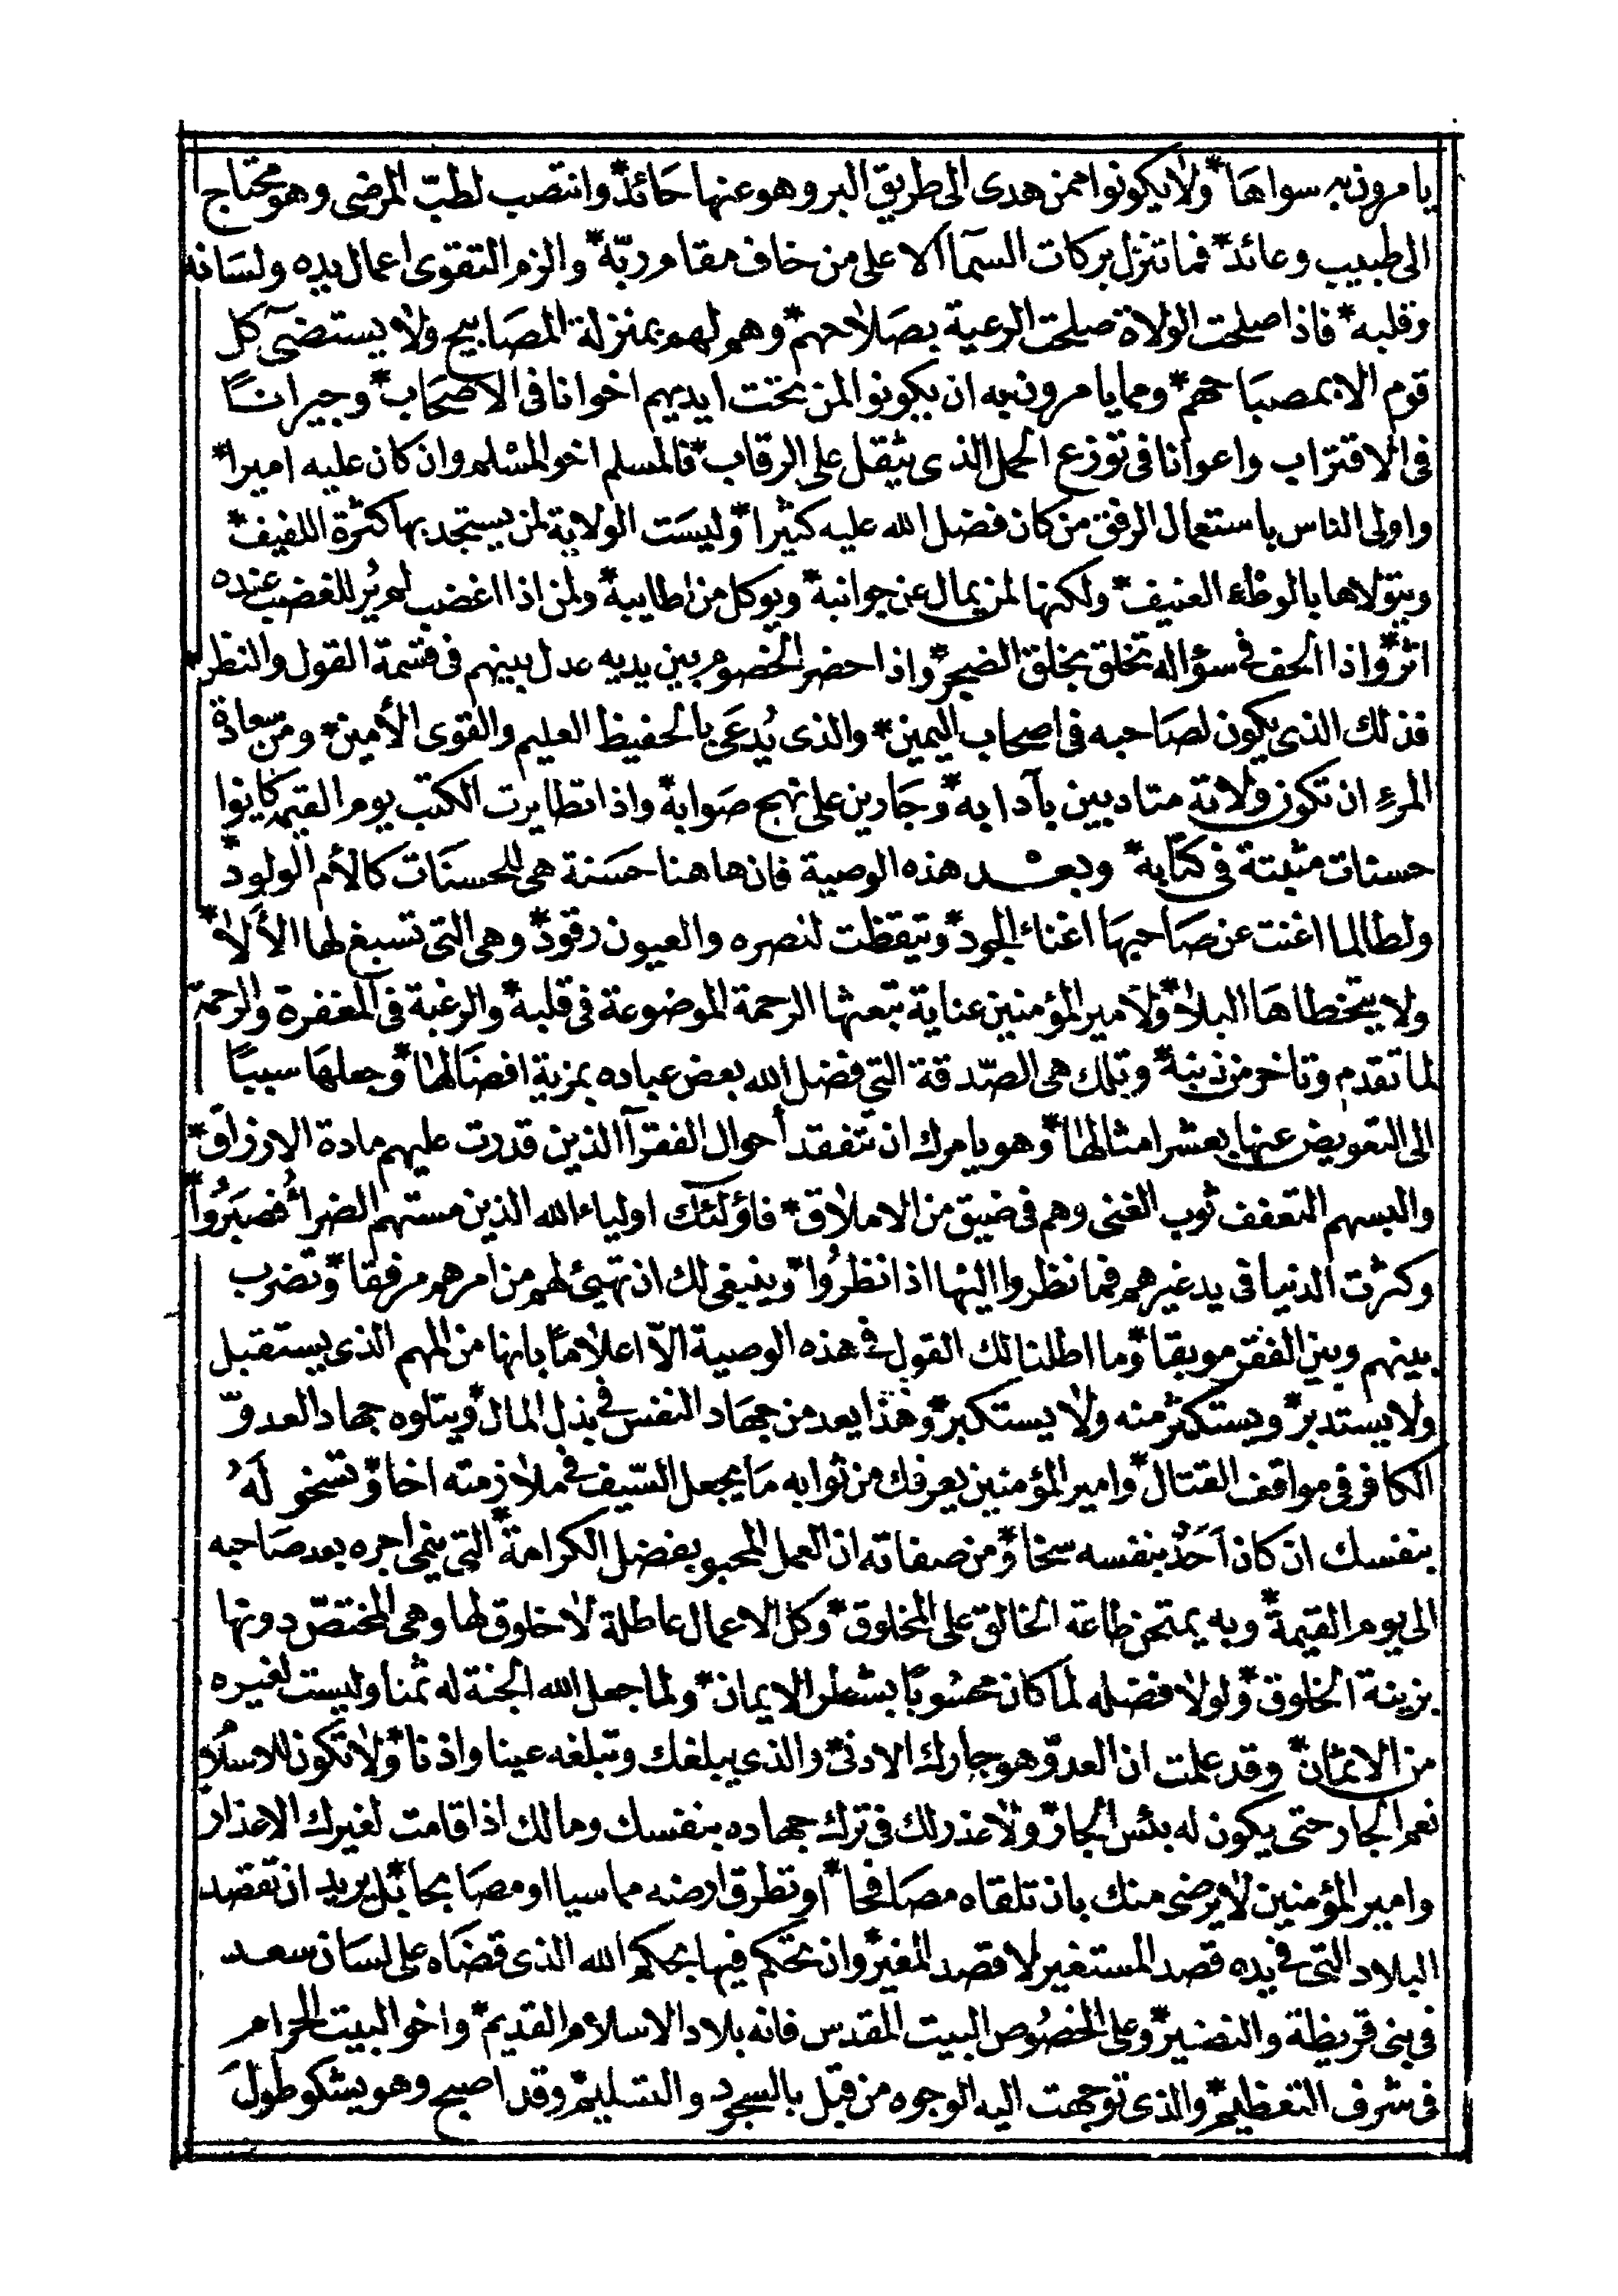 يامرون به سواها * ولا يكونوا ممن هدى الى طريق البر وهو عنها حائد * وانتصب لطبّ المرضى وهو محتاج
الى طبيب وعائد * فما تنزل بركات السمآ الا على من خاف مقام ربّه * والزم التقوى اعمال يده ولسانه
وقلبه * فاذا صلحت الولاة صلحت الرعية بصلاحهم * وهم لهم بمنزلة المصابيح ولا يستضئ كل
قوم الا بمصباحهم * ومما يامرون به ان يكونوا لمن تحت ايديهم اخوانا فى الاصحاب * وجيرانًا
فى الاقتراب واعوانا فى توزع الحمل الذى يثقل على الرقاب * فالمسلم اخو المسلم وان كان عليه اميرا *
واولى الناس باستعمال الرفق من كان فضل الله عليه كثيرا * وليست الولاية لمن يستجد بها كثرة اللفيف *
ويتولاها بالوطء العنيف * ولكنها لمن يمال عن جوانبه * ويوكل من اطايبه * ولمن اذا اغضب لم يُر للغضب عنده
اثر * واذا الحف فى سؤاله تخلق بخلق الضجر * واذا حضر الخصوم بين يديه عدل بينهم فى قسمة القول والنظر *
فذلك الذى يكون لصاحبه فى اصحاب اليمين * والذى يُدعَى بالحفيظ العليم والقوى الأمين * ومن سعادة
المرءِ ان تكون ولاته متادبين بآدابه * وجارين على نهج صوابه * واذا تطايرت الكتب يوم القيمه كانوا
حسنات مثبتة فى كتابه * وبعد هذه الوصية فان هاهنا حسنة هى للحسنات كالأم الولود *
ولطالما اغنت عن صاحبها اغناء الجود * وتيقظت لنصره والعيون رقود * وهى التى تسبغ لها الألا *
ولا يتخطاها البلا * ولامير المؤمنين عناية تبعثها الرحمة الموضوعة فى قلبه * والرغبة فى المغفرة والرحمة
لما تقدم وتاخر من ذنبه * وتلك هى الصّدقة التى فضل الله بعض عباده بمزية افضالها * وجعلها سببًا
الى التعويض عنها بعشر امثالها * وهو يامرك ان تتفقد أحوال الفقرآ الذين قدرت عليهم مادة الارزاق *
والبسهم التعفف ثوب الغنى وهم فى ضيق من الاملاق * فاولئك اولياء الله الذين مستهم الضرا فصبَرُوا *
وكثرت الدنيا فى يد غيرهم فما نظروا اليها اذا نظرُوا * وينبغى لك ان تهيئ لهم من امرهم مرفقا * وتضرب
بينهم وبين الفقر موبقا * وما اطلنا لك القول فى هذه الوصية الاّ اعلامًا بانها من المهم الذى يستقبل
ولا يستدبر * ويستكثر منه ولا يستكبر * وهذا يعد من جهاد النفس فى بذل المال * ويتلوه جهاد العدوّ
الكافر فى مواقف القتال * وامير المؤمنين يعرفك من ثوابه ما يجعل السّيف فى ملازمته اخا * وتسخو لَهُ
بنفسك ان كان اَحَدٌ بنفسه سخا * ومن صفاته ان العمل المحبو بفضل الكرامة * التى ينمى اجره بعد صاحبه
الى يوم القيمة * وبه يمتحن طاعة الخالق على المخلوق * وكل الاعمال عاطلة لا خلوق لها وهى المختصّ دونها
بزينة الخلوق * ولولا فضله لما كان محسُوبًا بشطر الايمان * ولما جعل الله الجنة له ثمنا وليست لغيره
من الاثمان * وقد علمت ان العدوّ هو جارك الادنى * والذى يبلغك وتبلغه عينا واذنا * ولا تكون للاسلام
نعم الجار حتى يكون له بئس الجار * ولا عذر لك فى ترك جهاده بنفسك ومالك اذا قامت لغيرك الاعذار *
وامير المؤمنين لا يرضى منك بان تلقاه مصافحا * او تطرق ارضه مماسيا او مصابحا * بل يريد ان تقصد
البلاد التى فى يده قصد المستغير لا قصد المغير * وان تحكم فيها بحكم الله الذى قضاه على لسان سعد
فى بنى قريظة والنضير * وعلى الخصُوص البيت المقدس فانه بلاد الاسلام القديم * واخو البيت الحرام
فى شرف التعظيم * والذى توجهت اليه الوجوه من قبل بالسجود والتسليم * وقد اصبح وهو يشكو طولَ